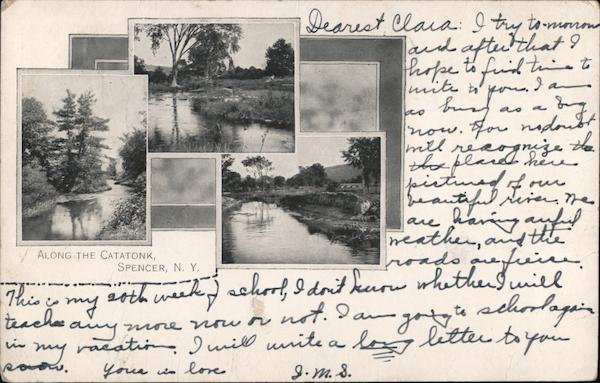 Dearest Clara: I try to-morrow
and after that I
hope to find time to
write to you. I am
as busy as a bug
now. You no doubt
will recognize the
the places here
pictured of our
beautiful river. We
are having awful
weather, and the
roads are fierce.
ALONG THE CATATONK,
SPENCER, N. Y.
This is my 20th week of school, I don't know whether I will
teach any more now or not. I am going to school again
in my vacation. I will write a long letter to you
soon. Your in love J. M. S.